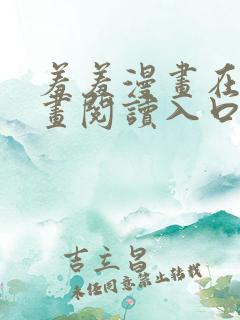 羞羞漫畫在
畫閱讀入口
吉立昌
未经同意禁止转载